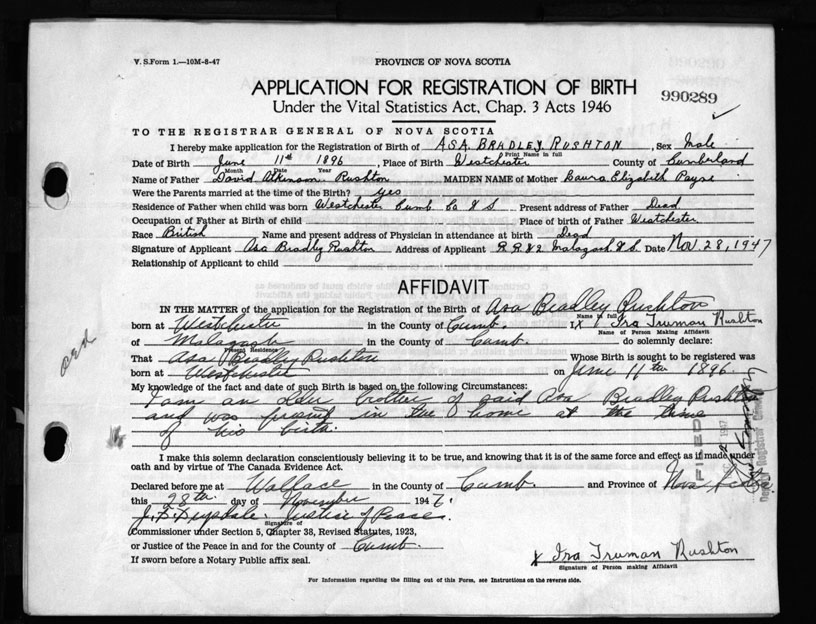 V. S. Form 1.—10M-8-47
PROVINCE OF NOVA SCOTIA
APPLICATION FOR REGISTRATION OF BIRTH
Under the Vital Statistics Act, Chap. 3 Acts 1946
990289
TO THE REGISTRAR GENERAL OF NOVA SCOTIA
I hereby make application for the Registration of Birth of ASA BRADLEY RUSHTON, Sex Male
Print Name in full
Date of Birth June 11th 1896, Place of Birth Westchester County of Cumberland
Month Day Year
Name of Father David Atkinson Rushton MAIDEN NAME of Mother Laura Elizabeth Payne
Were the Parents married at the time of the Birth? yes
Residence of Father when child was born Westchester Cumb. Co N S Present address of Father Dead
Occupation of Father at Birth of child Place of birth of Father Westchester
Race British Name and present address of Physician in attendance at birth Dead
Signature of Applicant Asa Bradley Rushton Address of Applicant R.R. #2 Malagash N.S. Date Nov 28, 1947
Relationship of Applicant to child
AFFIDAVIT
IN THE MATTER of the application for the Registration of the Birth of Asa Bradley Rushton
Name in full
born at Westchester in the County of Cumb. I x Ira Truman Rushton
Name of Person Making Affidavit
of Malagash in the County of Cumb. do solemnly declare:
Present Residence
That Asa Bradley Rushton Whose Birth is sought to be registered was
born at Westchester on June 11th 1896.
My knowledge of the fact and date of such Birth is based on the following Circumstances:
I am an older brother of said Asa Bradley Rushton
and was present in the home at the time
of his birth.
I make this solemn declaration conscientiously believing it to be true, and knowing that it is of the same force and effect as if made under
oath and by virtue of The Canada Evidence Act.
Declared before me at Wallace in the County of Cumb. and Province of Nova Scotia
this 28th day of November 1947.
J. F. Drysdale. Justice of Peace.
Signature of
Commissioner under Section 5, Chapter 38, Revised Statutes, 1923,
or Justice of the Peace in and for the County of Cumb.
If sworn before a Notary Public affix seal.
x Ira Truman Rushton
Signature of Person making Affidavit
For Information regarding the filling out of this Form, see Instructions on the reverse side.
FILED
1947